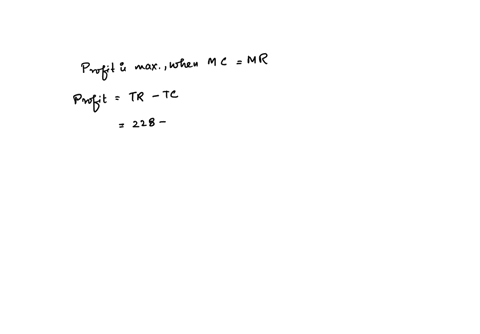 Profit is max., when MC = MR
Profit = TR - TC
= 228 -